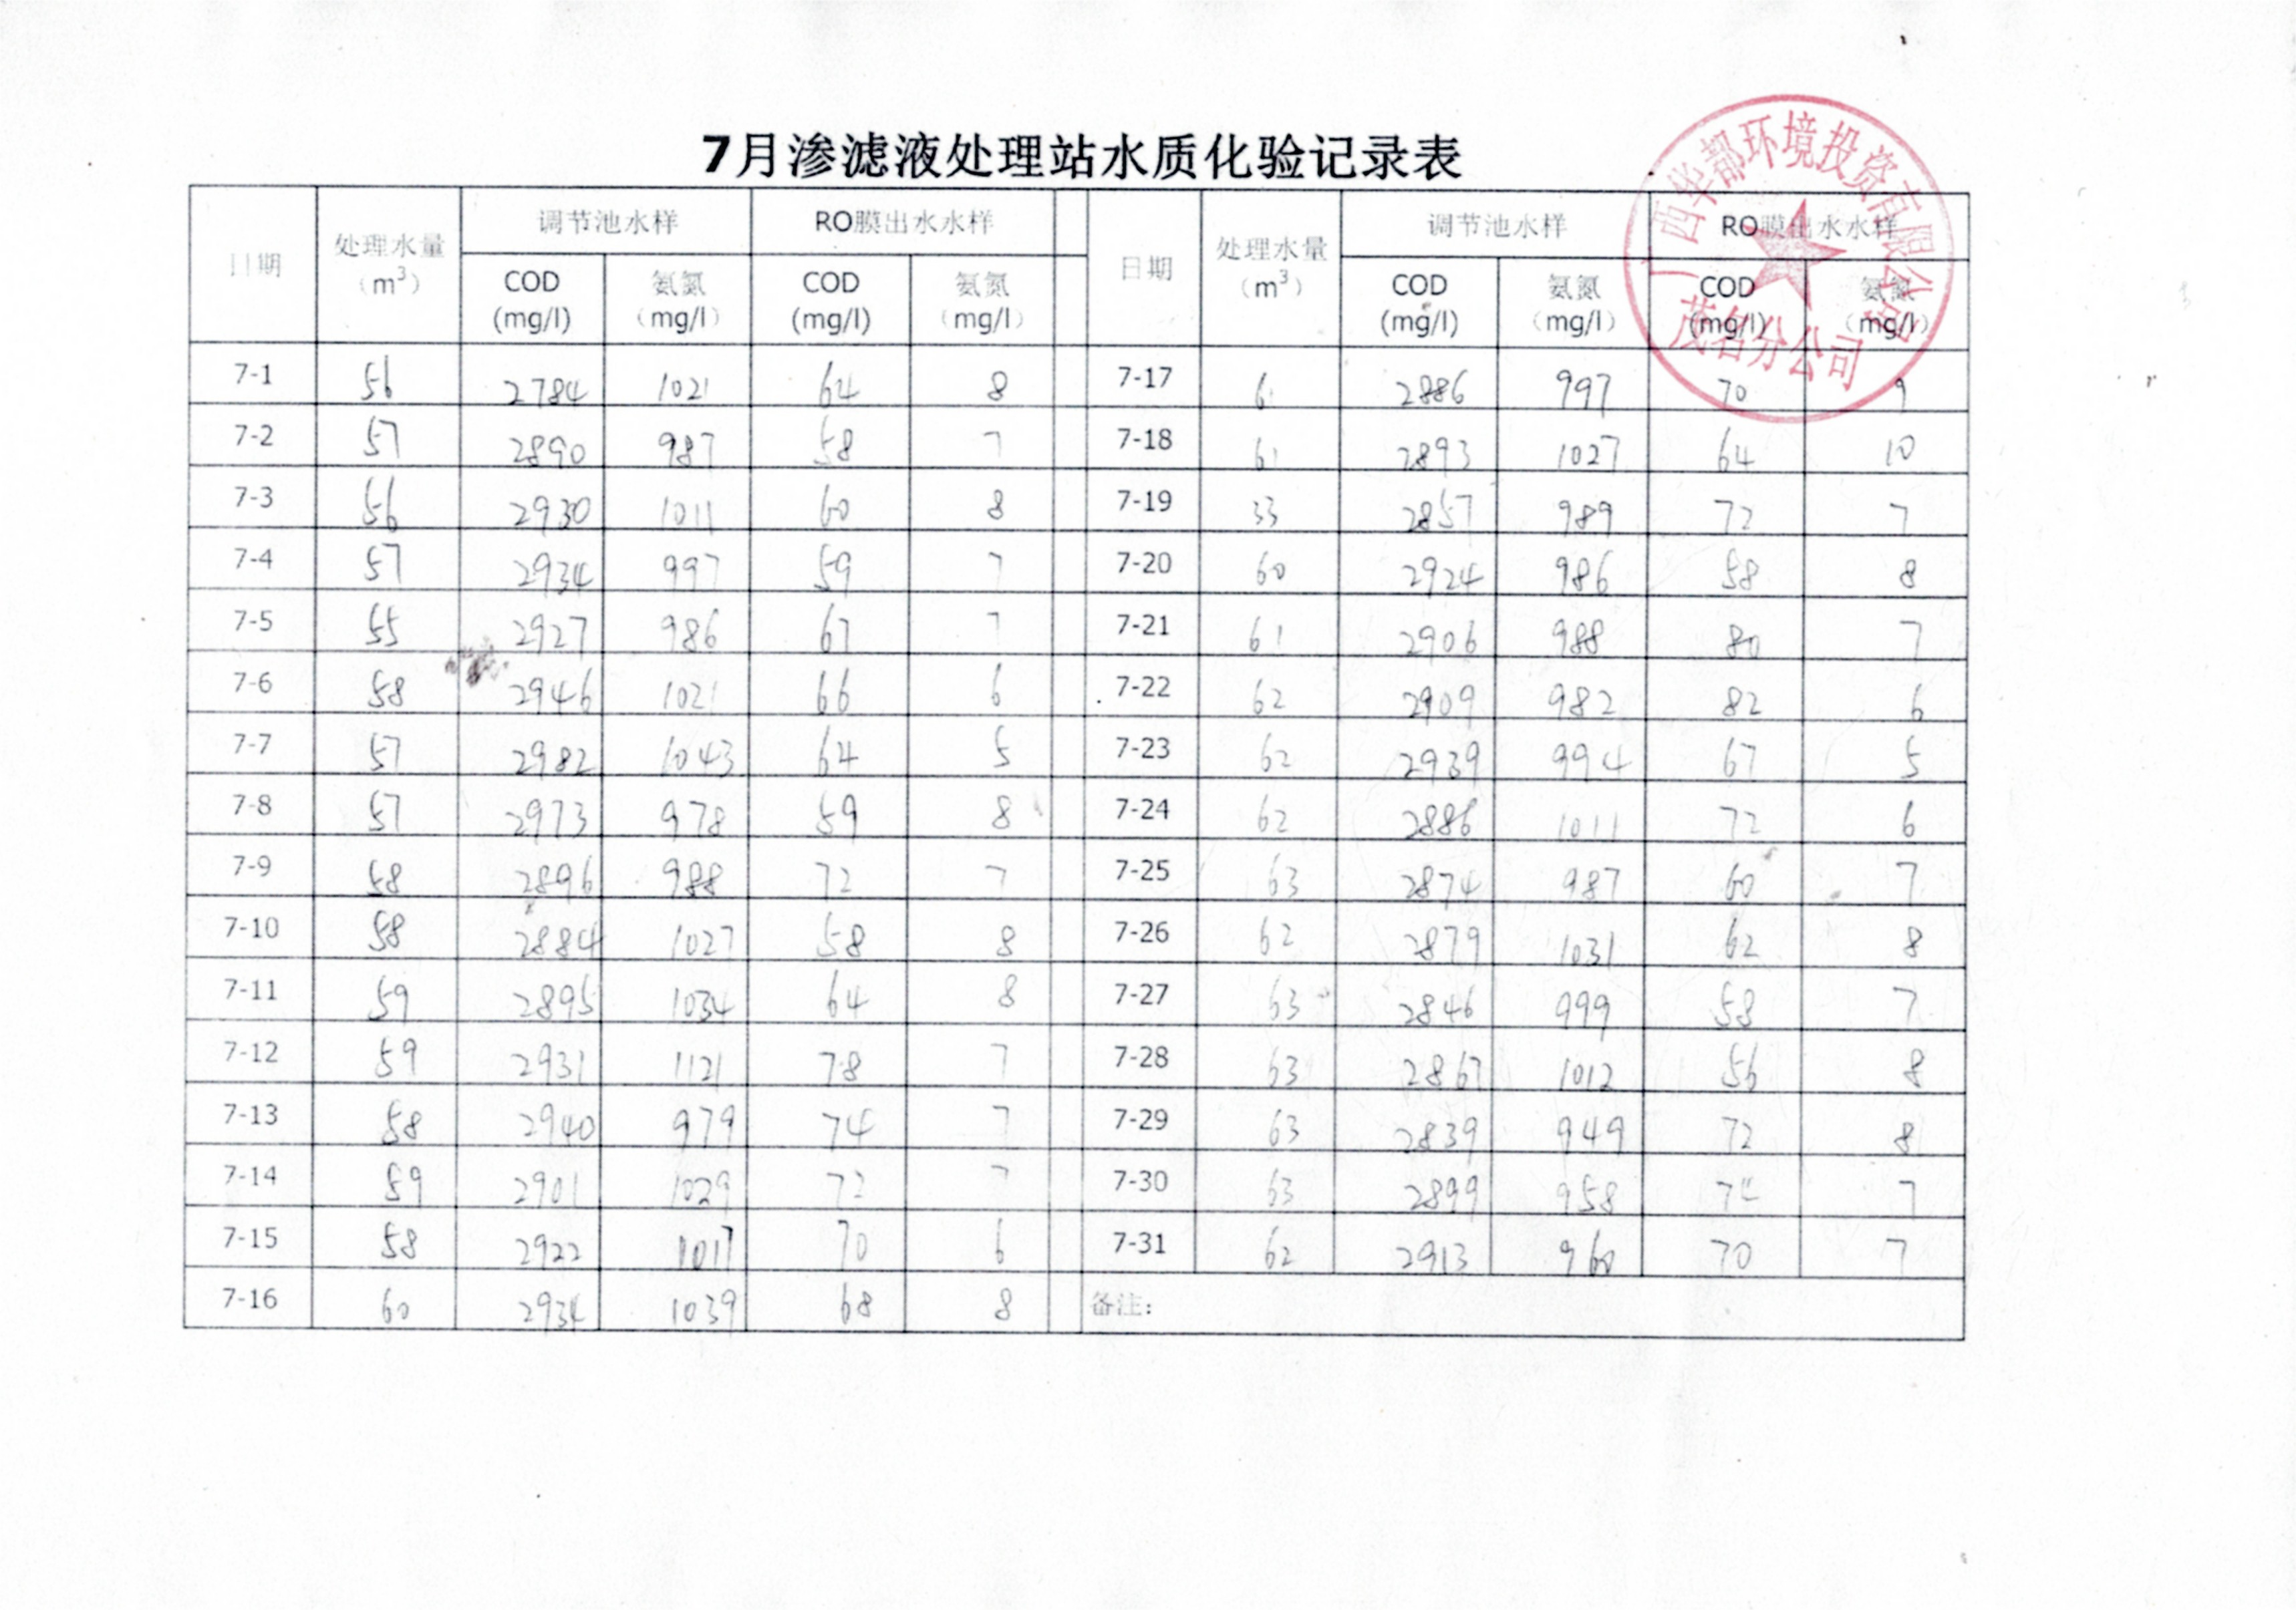 7月渗滤液处理站水质化验记录表
广西华都环境投资有限公司
茂名分公司
日期 处理水量 (m³) 调节池水样 RO膜出水水样 日期 处理水量 (m³) 调节池水样 RO膜出水水样
COD (mg/l) 氨氮 (mg/l) COD (mg/l) 氨氮 (mg/l) COD (mg/l) 氨氮 (mg/l) COD (mg/l) 氨氮 (mg/l)
7-1 56 2784 1021 64 8 7-17 61 2886 997 70 9
7-2 57 2890 987 58 7 7-18 61 2893 1027 64 10
7-3 56 2930 1011 60 8 7-19 33 2857 989 72 7
7-4 57 2934 997 59 7 7-20 60 2924 986 58 8
7-5 55 2927 986 67 7 7-21 61 2906 988 80 7
7-6 58 2946 1021 66 6 7-22 62 2909 982 82 6
7-7 57 2982 1043 64 5 7-23 62 2939 994 67 5
7-8 57 2973 978 59 8 7-24 62 2886 1011 72 6
7-9 58 2896 988 72 7 7-25 63 2874 987 60 7
7-10 58 2884 1027 58 8 7-26 62 2879 1031 62 8
7-11 59 2895 1034 64 8 7-27 63 2846 999 58 7
7-12 59 2931 1121 78 7 7-28 63 2867 1012 56 8
7-13 58 2940 979 74 7 7-29 63 2839 949 72 8
7-14 59 2901 1029 72 7 7-30 63 2899 958 74 7
7-15 58 2922 1017 70 6 7-31 62 2913 960 70 7
7-16 60 2934 1039 68 8 备注: